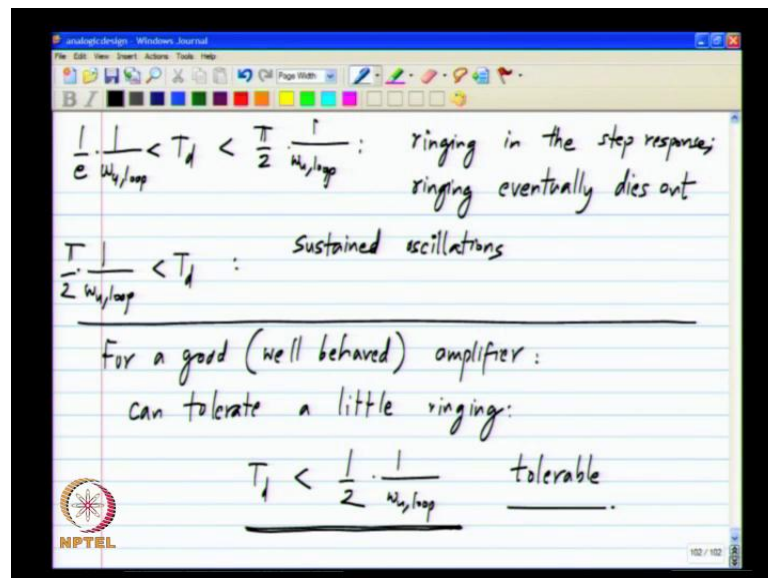 analogicdesign - Windows Journal
File Edit View Insert Actions Tools Help
Page Width
B I
1/e · 1/ω_u,loop < T_d < π/2 · 1/ω_u,loop : ringing in the step response;
ringing eventually dies out
π/2 1/ω_u,loop < T_d : Sustained oscillations
For a good (well behaved) amplifier :
can tolerate a little ringing:
T_d < 1/2 · 1/ω_u,loop tolerable.
NPTEL
102 / 102